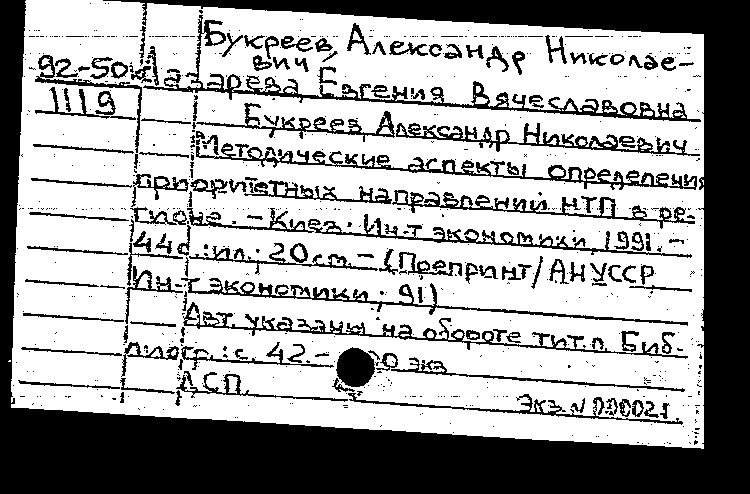 Букреев, Александр Николае-
вич
92-50к Лазарева, Евгения Вячеславовна
1119 Букреев, Александр Николаевич
Методические аспекты определения
приоритетных направлений НТП в ре-
гионе. – Киев: Ин-т экономики, 1991. –
44с.: ил.; 20см. – (Препринт/АНУССР
Ин-т экономики; 91)
Авт. указаны на обороте тит.л. Биб-
лиогр.: с. 42. – экз
ДСП.
Экз. N 000021.